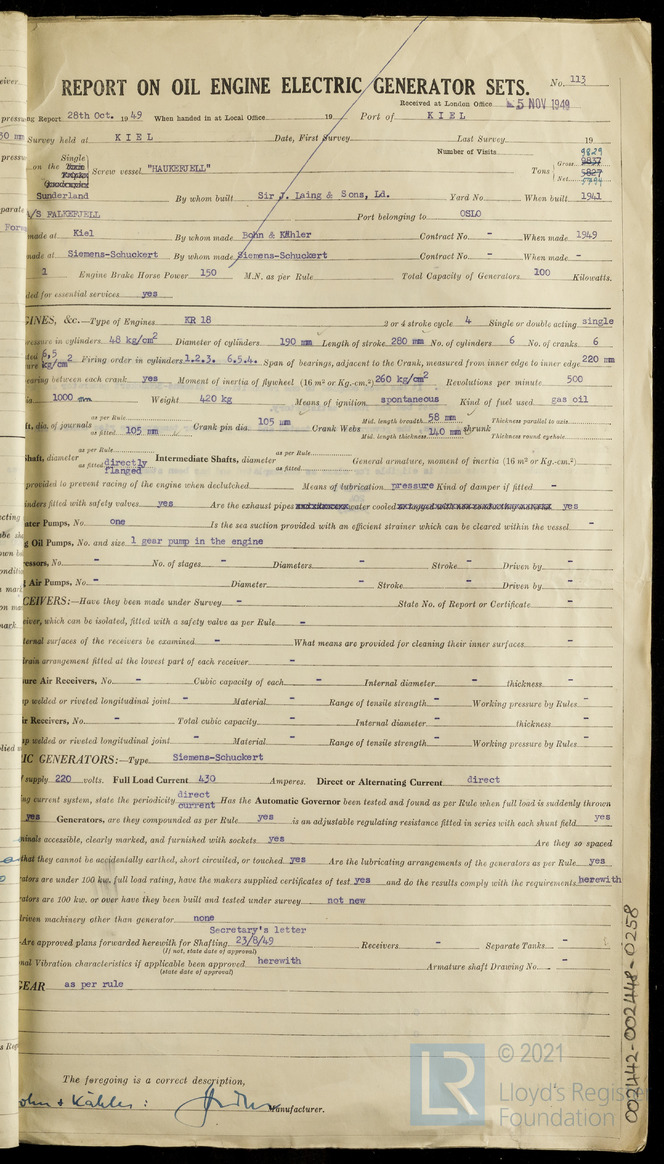 REPORT ON OIL ENGINE ELECTRIC GENERATOR SETS.
No. 113
Received at London Office 5 NOV 1949
ng Report 28th Oct. 1949 When handed in at Local Office 19 Port of KIEL
Survey held at KIEL Date, First Survey Last Survey 19
Number of Visits
on the Single Screw vessel "HAUKEFJELL" Tons Gross 9829 9837 Net 5827 5794
Sunderland By whom built Sir J. Laing & Sons, Ld. Yard No. When built 1941
A/S FALKEFJELL Port belonging to OSLO
made at Kiel By whom made Bohn & Kähler Contract No. - When made 1949
made at Siemens-Schuckert By whom made Siemens-Schuckert Contract No. - When made -
1 Engine Brake Horse Power 150 M.N. as per Rule Total Capacity of Generators 100 Kilowatts.
ded for essential services yes
GINES, &c.—Type of Engines KR 18 2 or 4 stroke cycle 4 Single or double acting single
pressure in cylinders 48 kg/cm2 Diameter of cylinders 190 mm Length of stroke 280 mm No. of cylinders 6 No. of cranks 6
6,5 kg/cm2 Firing order in cylinders 1.2.3. 6.5.4. Span of bearings, adjacent to the Crank, measured from inner edge to inner edge 220 mm
earing between each crank yes Moment of inertia of flywheel (16 m² or Kg.-cm.²) 260 kg/cm2 Revolutions per minute 500
1000 mm Weight 420 kg Means of ignition spontaneous Kind of fuel used gas oil
ft, dia. of journals as per Rule as fitted 105 mm Crank pin dia. 105 mm Crank Webs Mid. length breadth 58 mm Mid. length thickness 140 mm shrunk Thickness parallel to axis Thickness round eyehole
Shaft, diameter as per Rule as fitted directly flanged Intermediate Shafts, diameter as per Rule as fitted General armature, moment of inertia (16 m² or Kg.-cm.²)
provided to prevent racing of the engine when declutched Means of lubrication pressure Kind of damper if fitted -
inders fitted with safety valves yes Are the exhaust pipes water cooled yes
ater Pumps, No. one Is the sea suction provided with an efficient strainer which can be cleared within the vessel -
g Oil Pumps, No. and size 1 gear pump in the engine
ressors, No. - No. of stages - Diameters - Stroke - Driven by -
Air Pumps, No. - Diameter - Stroke - Driven by -
CEIVERS:—Have they been made under Survey - State No. of Report or Certificate -
eiver, which can be isolated, fitted with a safety valve as per Rule -
ternal surfaces of the receivers be examined - What means are provided for cleaning their inner surfaces -
drain arrangement fitted at the lowest part of each receiver -
ure Air Receivers, No. - Cubic capacity of each - Internal diameter - thickness -
p welded or riveted longitudinal joint - Material - Range of tensile strength - Working pressure by Rules -
ir Receivers, No. - Total cubic capacity - Internal diameter - thickness -
p welded or riveted longitudinal joint - Material - Range of tensile strength - Working pressure by Rules -
IC GENERATORS:—Type Siemens-Schuckert
supply 220 volts. Full Load Current 430 Amperes. Direct or Alternating Current direct
ng current system, state the periodicity direct current Has the Automatic Governor been tested and found as per Rule when full load is suddenly thrown
yes Generators, are they compounded as per Rule yes is an adjustable regulating resistance fitted in series with each shunt field yes
minals accessible, clearly marked, and furnished with sockets yes Are they so spaced
that they cannot be accidentally earthed, short circuited, or touched yes Are the lubricating arrangements of the generators as per Rule yes
ators are under 100 kw. full load rating, have the makers supplied certificates of test yes and do the results comply with the requirements herewith
rators are 100 kw. or over have they been built and tested under survey not new
driven machinery other than generator none
Secretary's letter
Are approved plans forwarded herewith for Shafting 23/8/49 Receivers - Separate Tanks -
(If not, state date of approval)
nal Vibration characteristics if applicable been approved herewith Armature shaft Drawing No. -
(state date of approval)
GEAR as per rule
The foregoing is a correct description,
ohn & Kähler: Manufacturer.
002442-002448-0258
© 2021
LR
Lloyd's Register
Foundation